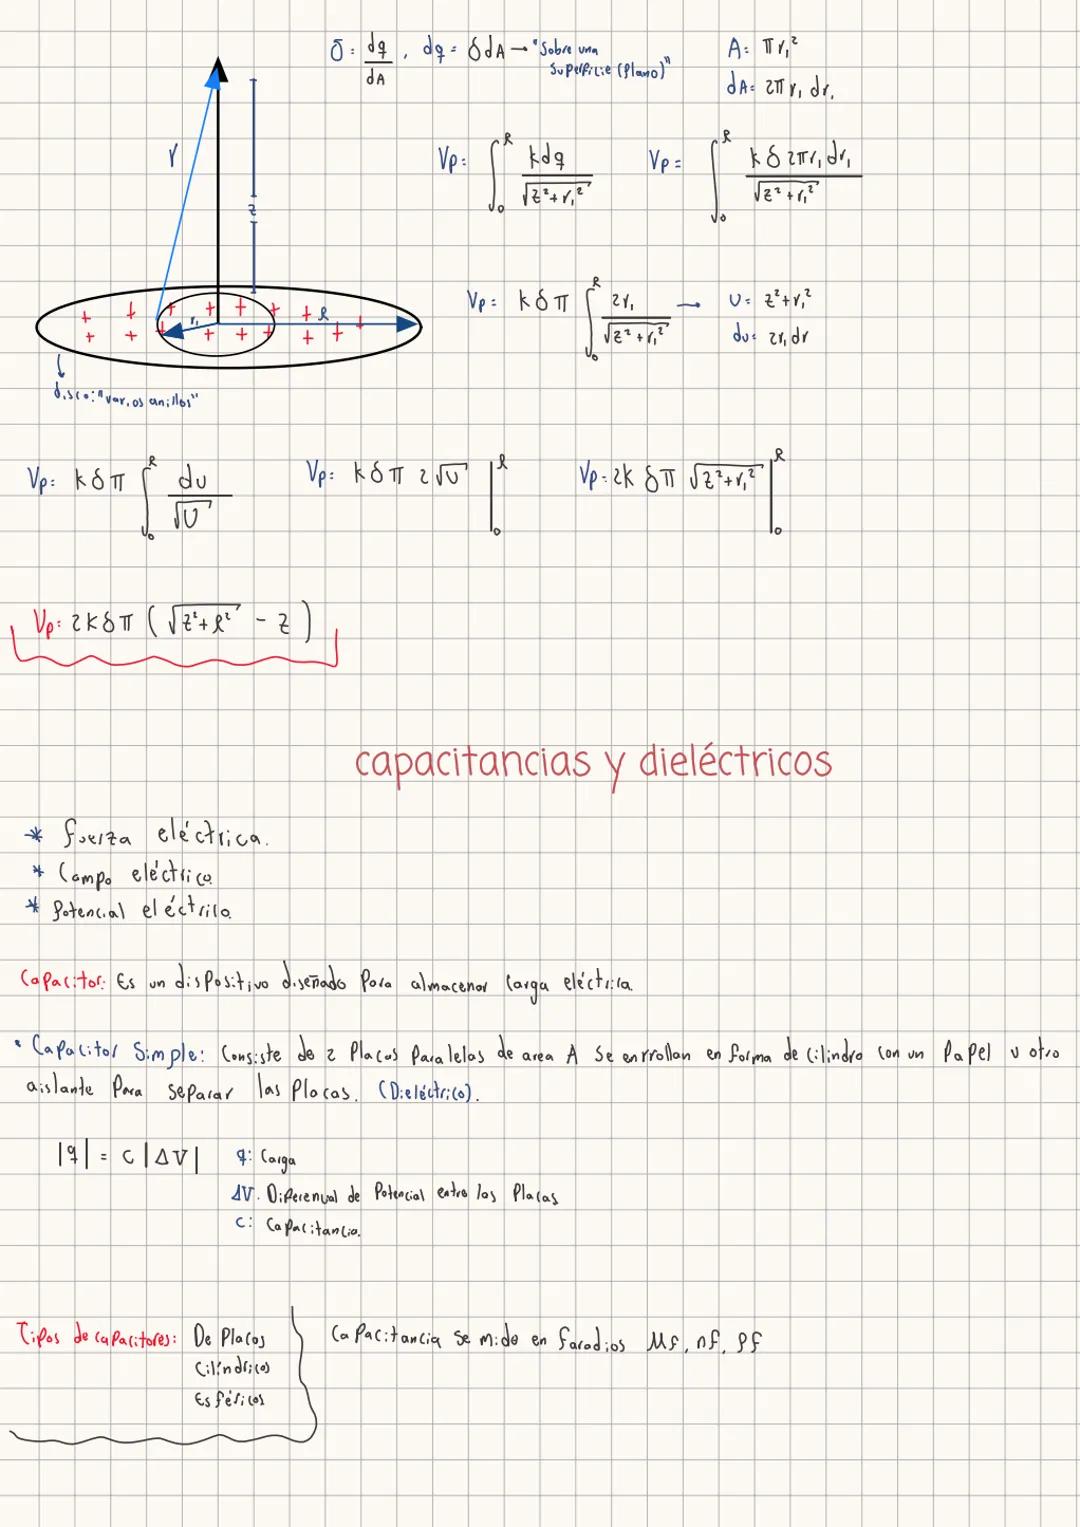 δ: dq/dA , dq = δdA → "Sobre una
Superficie (Plano)"
A: πr₁²
dA: 2πr₁ dr₁
Vp: ∫₀ᴿ kdq/√(z²+r₁²)
Vp = ∫₀ᴿ kδ2πr₁dr₁/√(z²+r₁²)
r
z
Vp: kδπ ∫₀ᴿ 2r₁/√(z²+r₁²) → U: z²+r₁²
du: 2r₁dr
r₁
R
disco: "varios anillos"
Vp: kδπ ∫₀ᴿ du/√U
Vp: kδπ 2√U |₀ᴿ
Vp: 2kδπ √(z²+r₁²) |₀ᴿ
Vp: 2kδπ (√(z²+R²) - z)
capacitancias y dieléctricos
* fuerza eléctrica.
* Campo eléctrico
* Potencial eléctrico
Capacitor: Es un dispositivo diseñado Para almacenar Carga eléctrica
• Capacitor Simple: Consiste de 2 Placas Paralelas de area A Se enrrollan en forma de Cilindro Con un Papel u otro
aislante Para separar las Placas. (Dieléctrico).
|q| = C|ΔV|
q: Carga
ΔV. Diferencial de Potencial entre las Placas
C: Capacitancia.
Tipos de capacitores: De Placas
Cilíndricos
Esféricos
Capacitancia Se mide en faradios Mf, nf, Pf